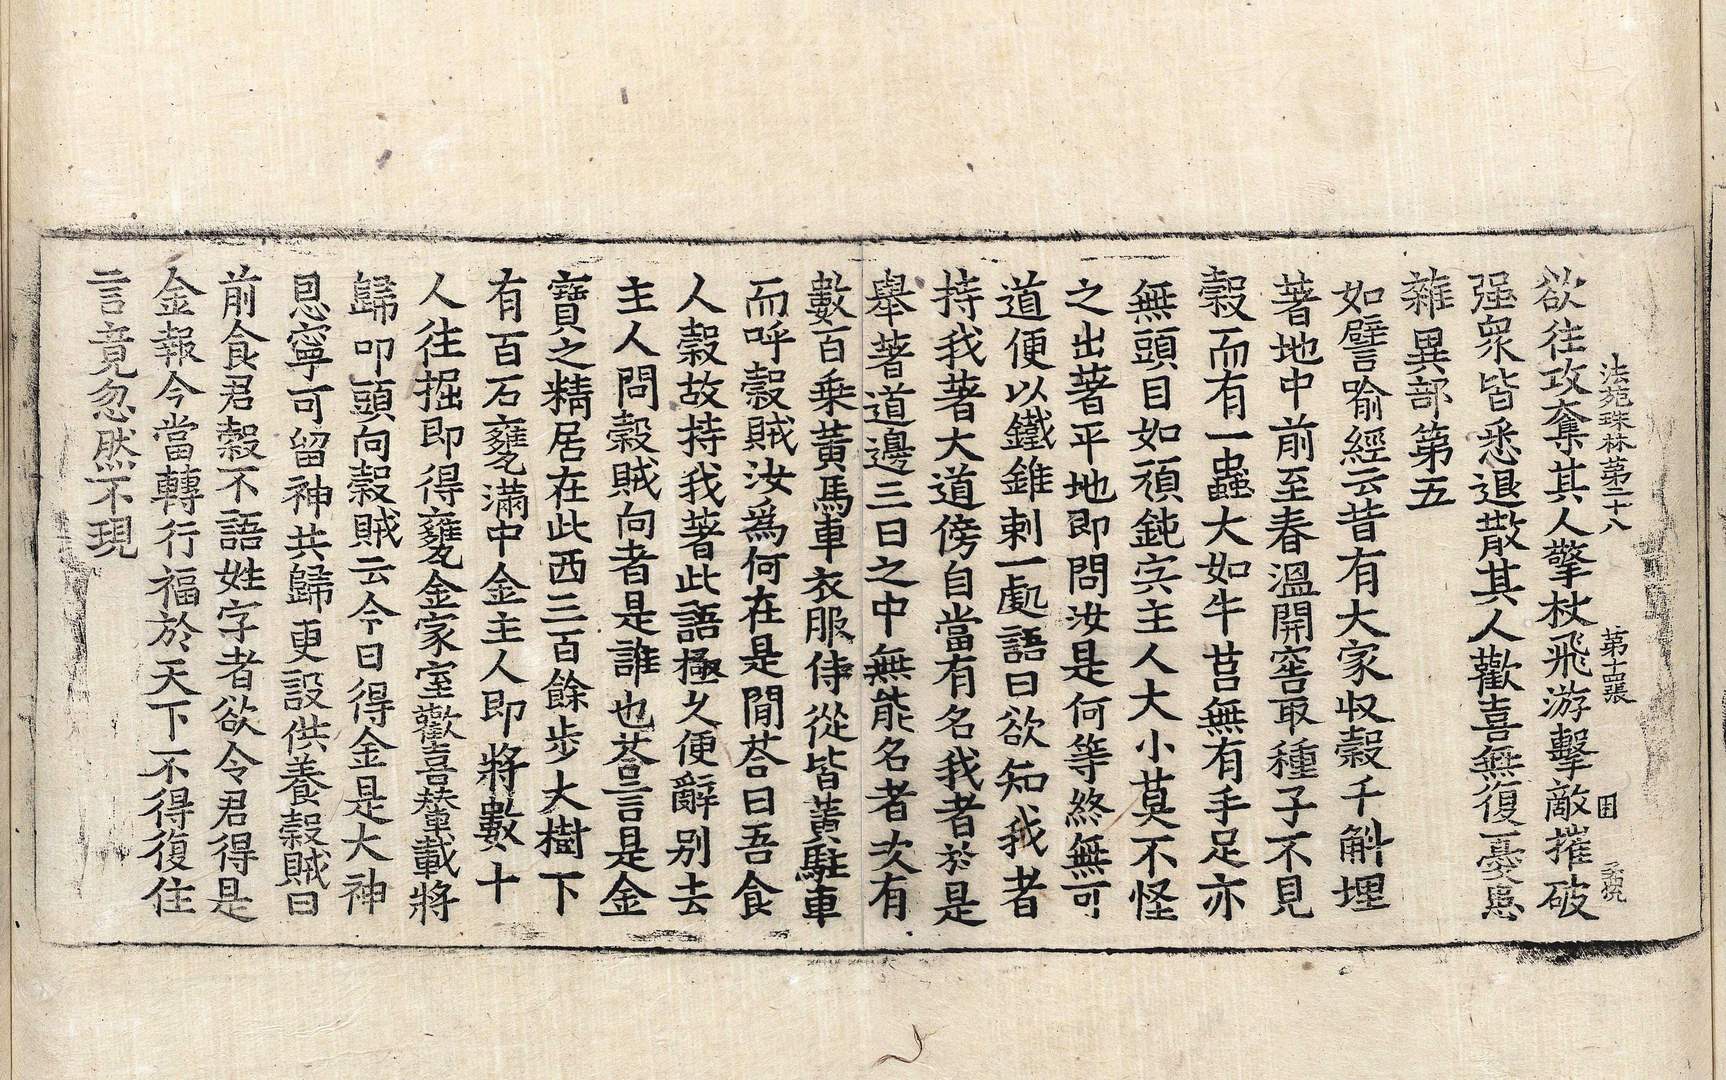 法苑珠林第二十八　第十四張　囯
欲往攻奪其人擎杖飛游擊敵摧破
强衆皆悉退散其人歡喜無復憂患
雜異部第五
如譬喻經云昔有大家収穀千斛埋
著地中前至春溫開窖取種子不見
穀而有一蟲大如牛莒無有手足亦
無頭目如頑鈍宍主人大小莫不怪
之出著平地即問汝是何等終無可
道便以鐵錐刺一處語曰欲知我者
持我著大道傍自當有名我者於是
舉著道邊三日之中無能名者次有
數百乘黃馬車衣服侍從皆黃駐車
而呼穀賊汝爲何在是閒荅曰吾食
人穀故持我著此語極久便辭別去
主人問穀賊向者是誰也荅言是金
寶之精居在此西三百餘步大樹下
有百石甕滿中金主人即將數十
人往掘即得甕金家室歡喜輦載將
歸叩頭向穀賊云今日得金是大神
恩寧可留神共歸更設供養穀賊曰
前食君穀不語姓字者欲令君得是
金報今當轉行福於天下不得復住
言竟忽然不現